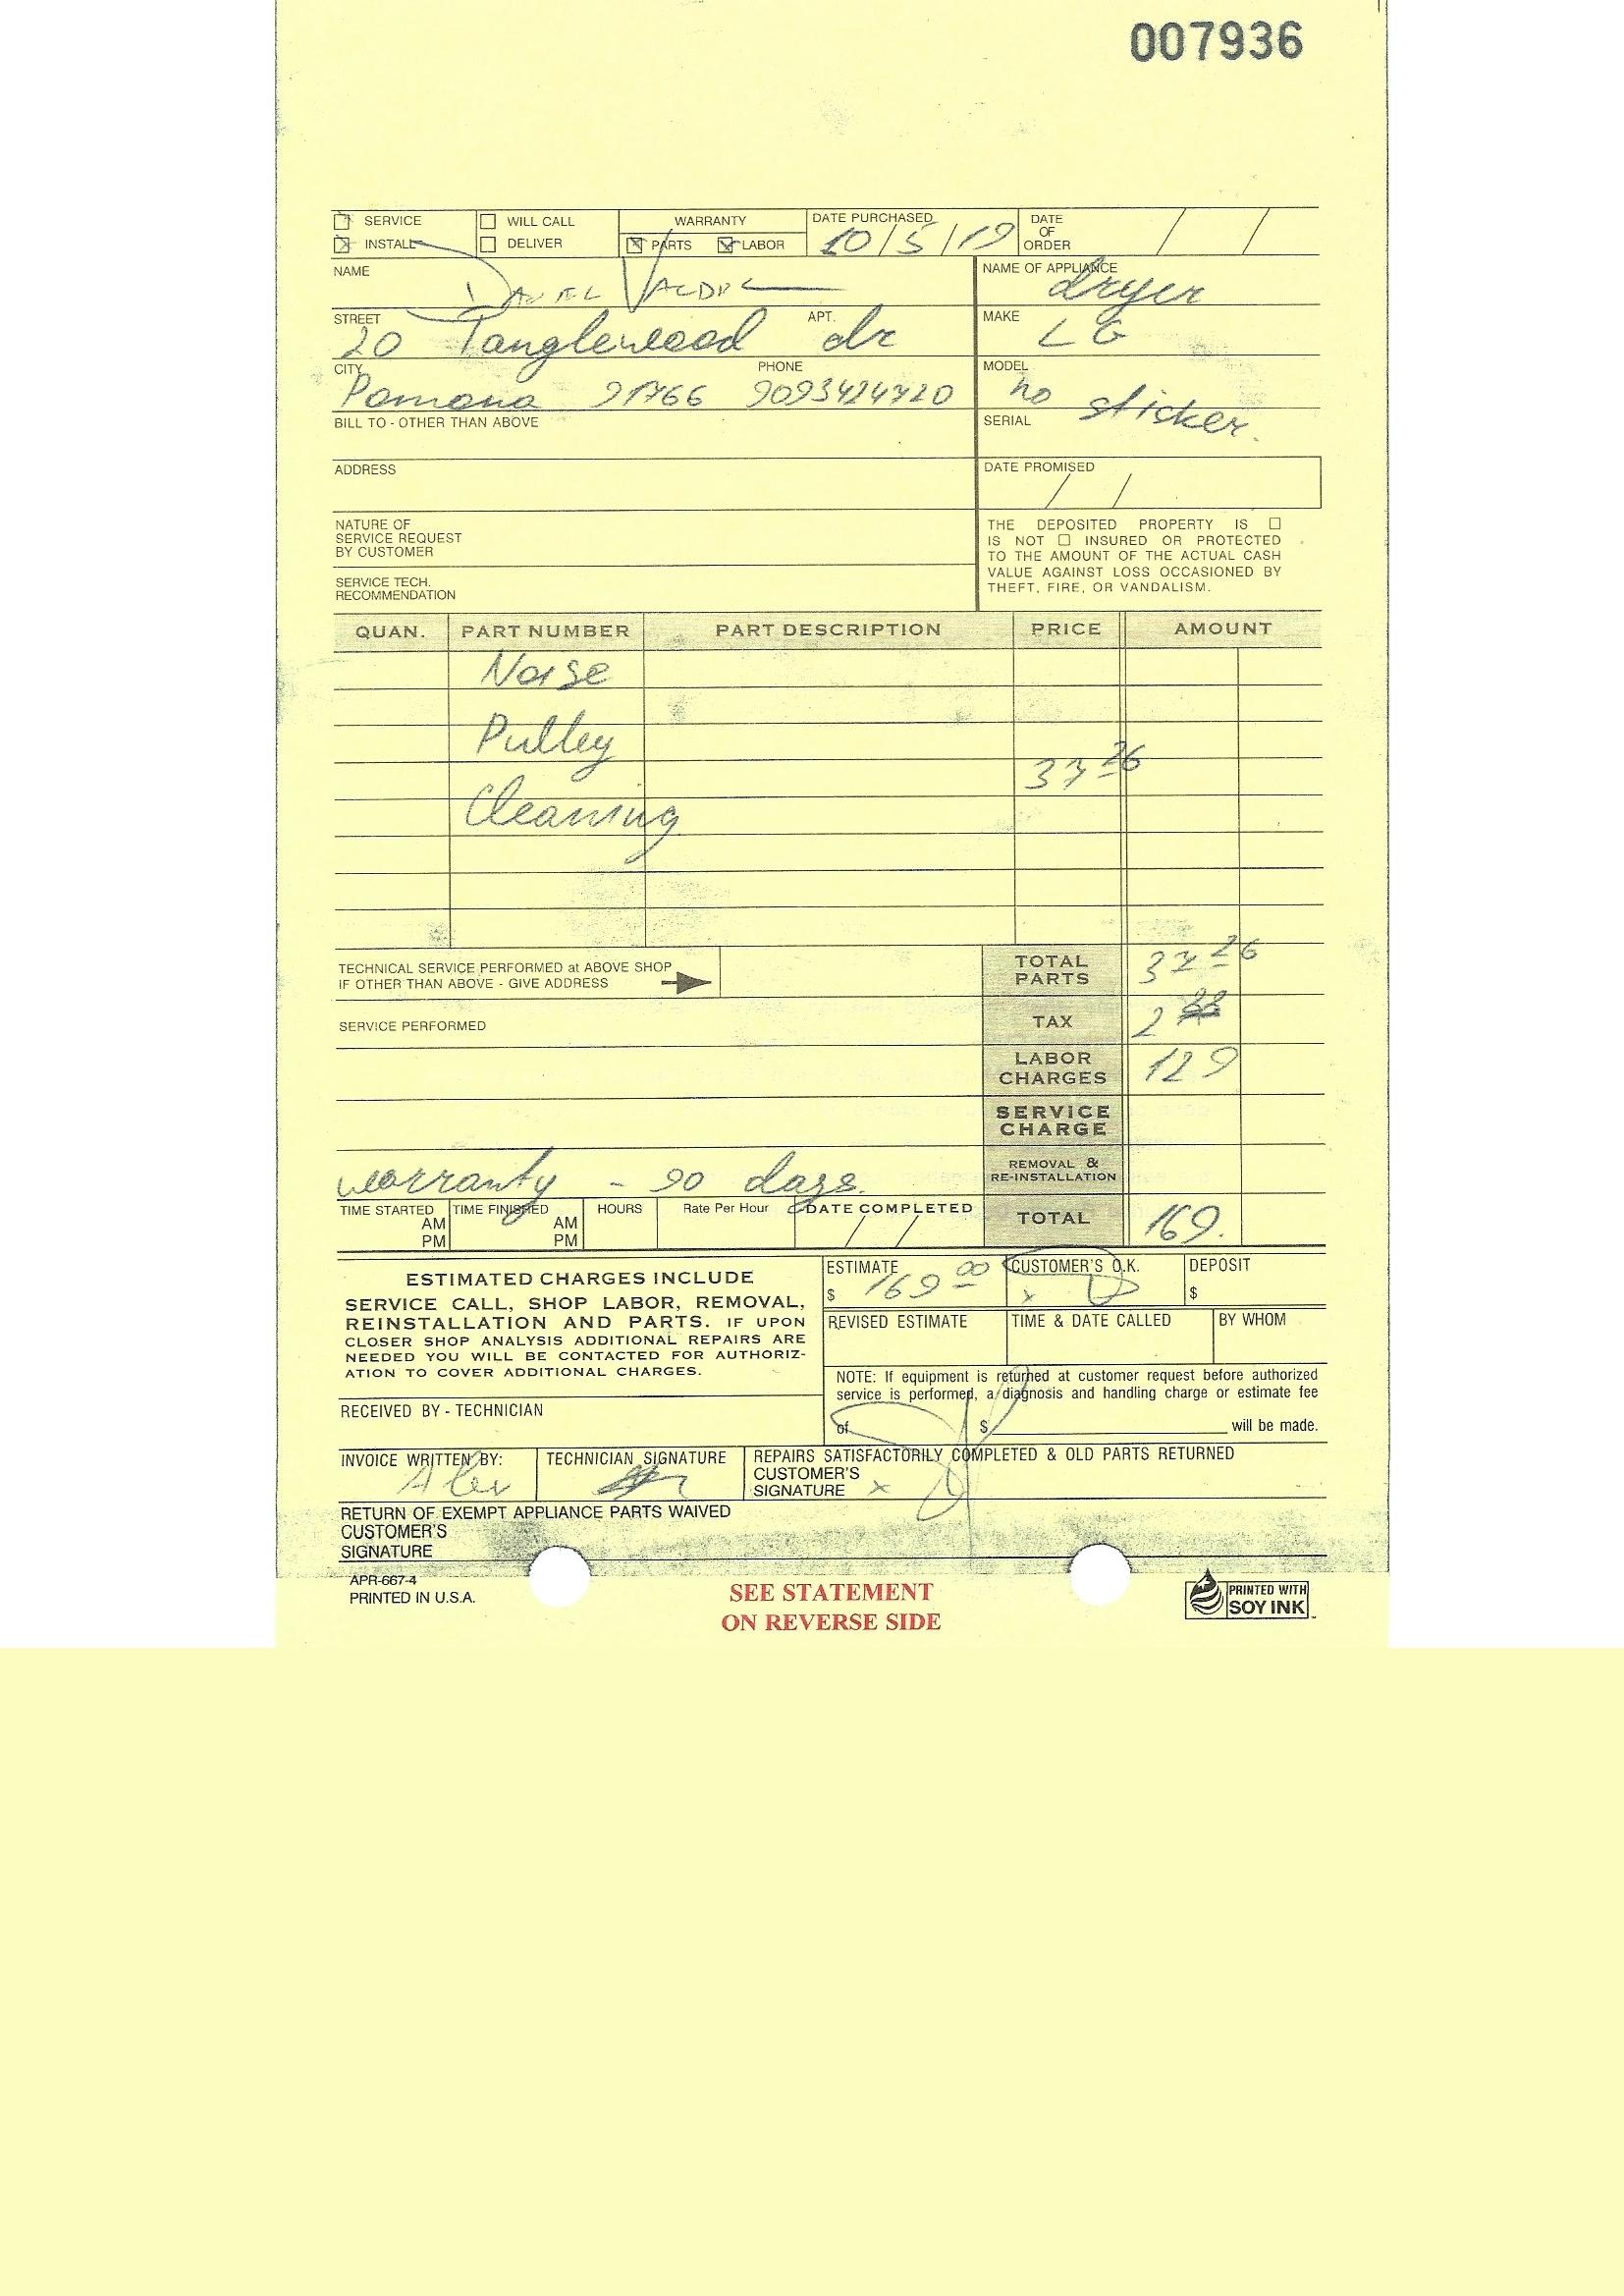 007936
SERVICE WILL CALL WARRANTY DATE PURCHASED DATE OF ORDER
INSTALL DELIVER PARTS LABOR 10/5/19 / /
NAME NAME OF APPLIANCE
dryer
STREET APT. MAKE
20 Tanglewood dr LG
CITY PHONE MODEL
Pomona 91766 9093424720 no sticker.
BILL TO - OTHER THAN ABOVE SERIAL
ADDRESS DATE PROMISED
/ /
NATURE OF
SERVICE REQUEST
BY CUSTOMER
THE DEPOSITED PROPERTY IS
IS NOT INSURED OR PROTECTED
TO THE AMOUNT OF THE ACTUAL CASH
VALUE AGAINST LOSS OCCASIONED BY
THEFT, FIRE, OR VANDALISM.
SERVICE TECH.
RECOMMENDATION
QUAN. PART NUMBER PART DESCRIPTION PRICE AMOUNT
Noise
Pulley
Cleaning
TECHNICAL SERVICE PERFORMED at ABOVE SHOP
IF OTHER THAN ABOVE - GIVE ADDRESS
TOTAL PARTS
SERVICE PERFORMED
TAX 2
LABOR CHARGES 129
SERVICE CHARGE
REMOVAL & RE-INSTALLATION
warranty - 90 days.
TIME STARTED AM PM TIME FINISHED AM PM HOURS Rate Per Hour DATE COMPLETED / / TOTAL 169.
ESTIMATED CHARGES INCLUDE
SERVICE CALL, SHOP LABOR, REMOVAL,
REINSTALLATION AND PARTS. IF UPON
CLOSER SHOP ANALYSIS ADDITIONAL REPAIRS ARE
NEEDED YOU WILL BE CONTACTED FOR AUTHORIZ-
ATION TO COVER ADDITIONAL CHARGES.
ESTIMATE CUSTOMER'S O.K. DEPOSIT
$ 169 00 x $
REVISED ESTIMATE TIME & DATE CALLED BY WHOM
NOTE: If equipment is returned at customer request before authorized
service is performed, a diagnosis and handling charge or estimate fee
of $ will be made.
RECEIVED BY - TECHNICIAN
INVOICE WRITTEN BY: TECHNICIAN SIGNATURE REPAIRS SATISFACTORILY COMPLETED & OLD PARTS RETURNED
Alex
CUSTOMER'S
SIGNATURE x
RETURN OF EXEMPT APPLIANCE PARTS WAIVED
CUSTOMER'S
SIGNATURE
APR-667-4
PRINTED IN U.S.A.
SEE STATEMENT
ON REVERSE SIDE
PRINTED WITH
SOY INK